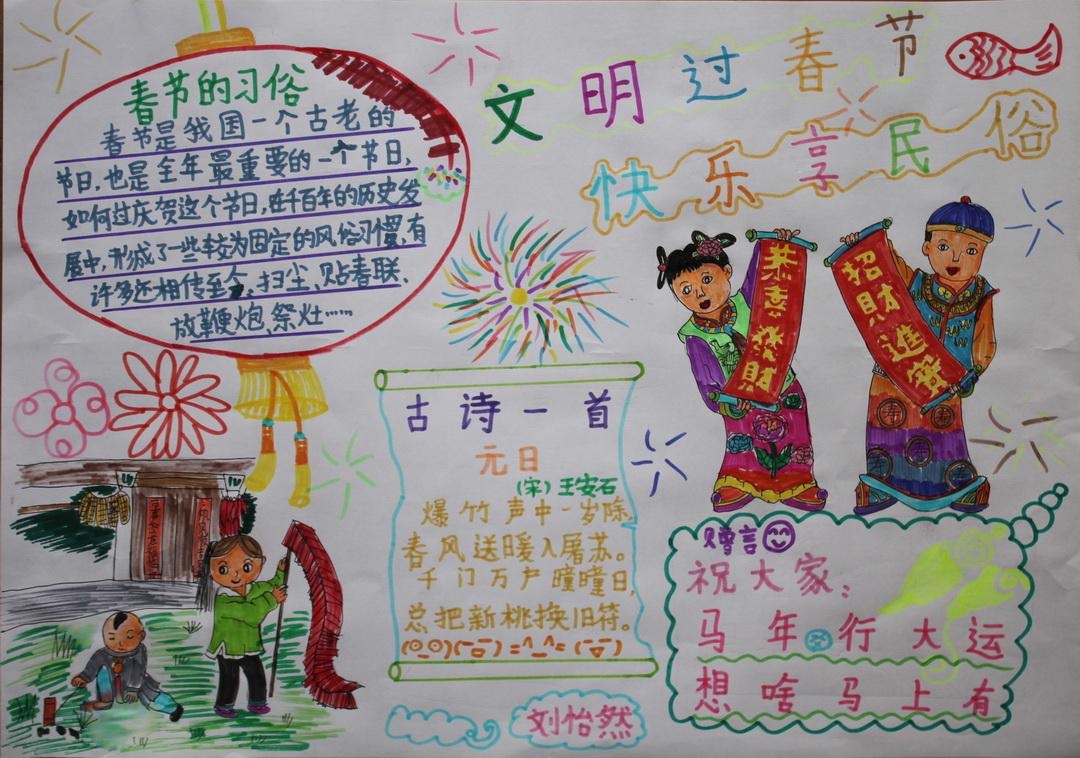 文明过春节
快乐享民俗
春节的习俗
春节是我国一个古老的
节日,也是全年最重要的一个节日,
如何过庆贺这个节日,在千百年的历史发
展中,形成了一些较为固定的风俗习惯,有
许多还相传至今,扫尘、贴春联、
放鞭炮,祭灶……
恭喜發財
招財進寶
古诗一首
元日
(宋)王安石
爆竹声中一岁除,
春风送暖入屠苏。
千门万户曈曈日,
总把新桃换旧符。
赠言
祝大家:
马年行大运
想啥马上有
刘怡然